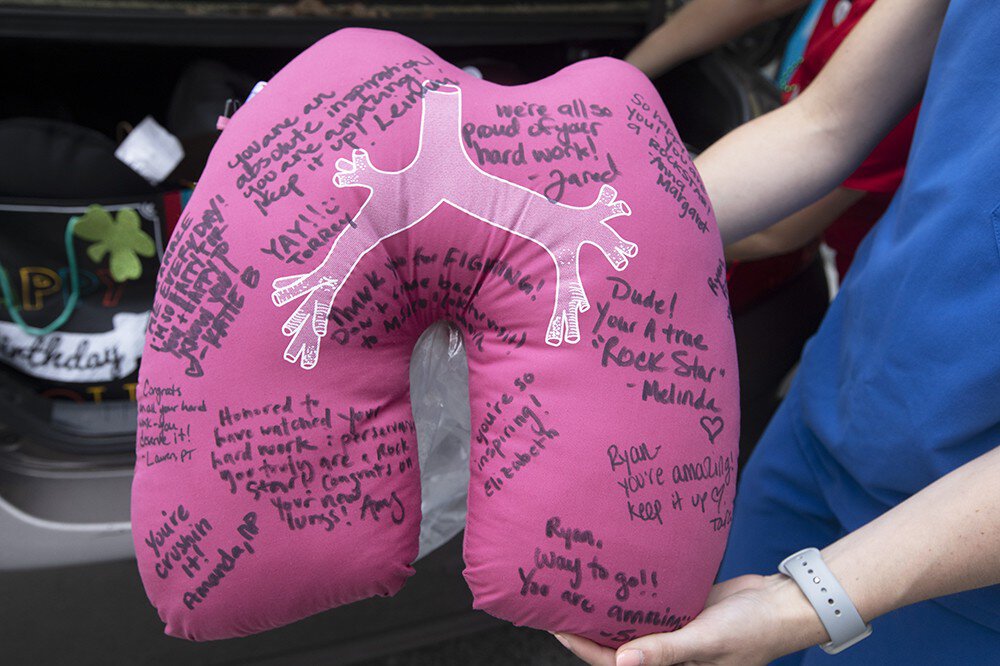 you are an
absolute inspiration
you are amazing!
Keep it up!
we're also
proud of your
hard work!
- Jared
a ROCKSTAR
Margaret
YAY!! :)
Torrey
EVERY DAY!
- KATIE
THANK you for FIGHTING!
Dude!
Your A true
"ROCK STAR"
- Melinda ♡
Congrats
on all your hard
work - you
deserve it!
- Lauren PT
Honored to
have watched your
hard work &
you truly are a Rock
Star! Congrats on
your new
lungs! Amy
you're so
inspiring!
elizabeth
Ryan -
you're amazing!
keep it up ♡
You're
crushin
it!
Amanda, NP
Ryan,
Way to go!!
You are
APPY
Birthday